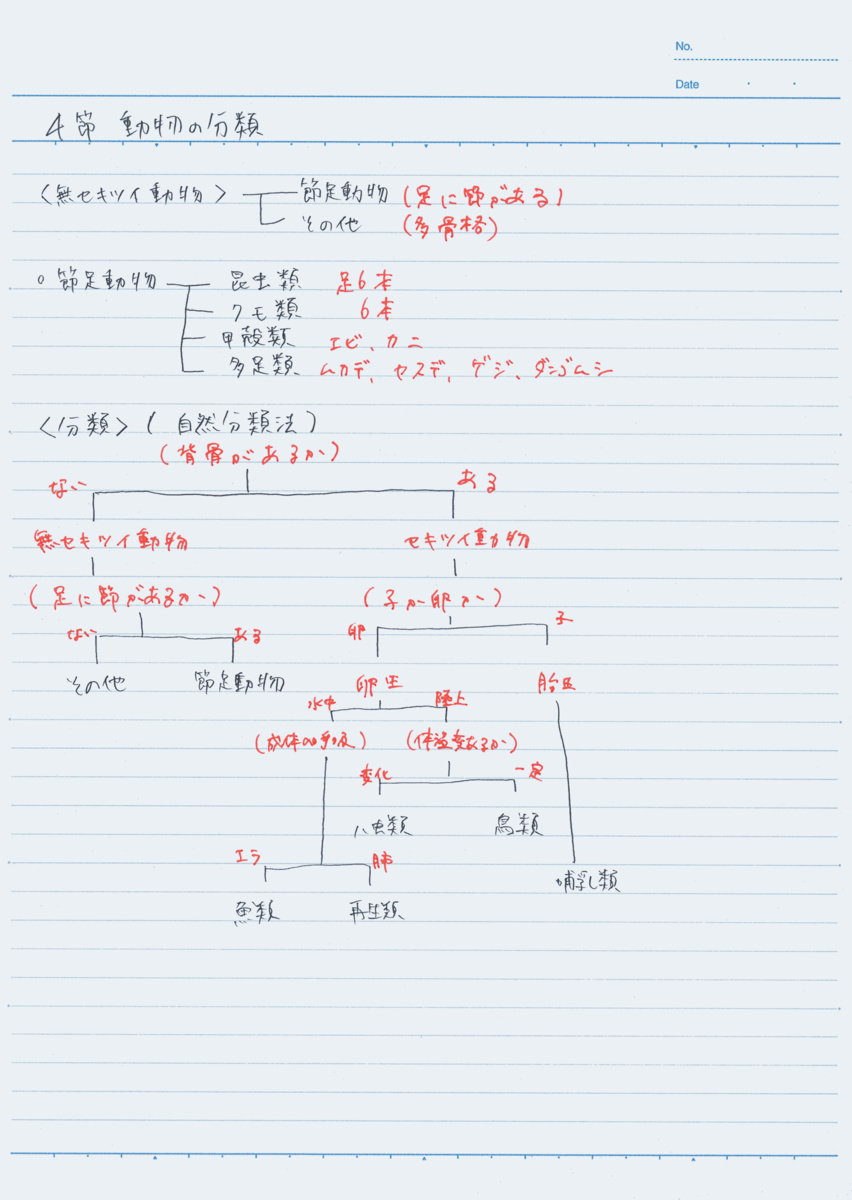 No.
Date
4節 動物の分類
〈無セキツイ動物〉 節足動物 (足に節がある)
その他 (多骨格)
○節足動物 昆虫類 足6本
クモ類 6本
甲殻類 エビ、カニ
多足類 ムカデ、ヤスデ、ゲジ、ダンゴムシ
〈分類〉(自然分類法)
(背骨があるか)
ない ある
無セキツイ動物 セキツイ動物
(足に節があるか) (子か卵か)
ない ある 卵 子
その他 節足動物 卵生 胎生
水中 陸上
(成体の) (体温変あるか)
変化 一定
ハ虫類 鳥類
エラ 肺
哺乳類
魚類 再生類